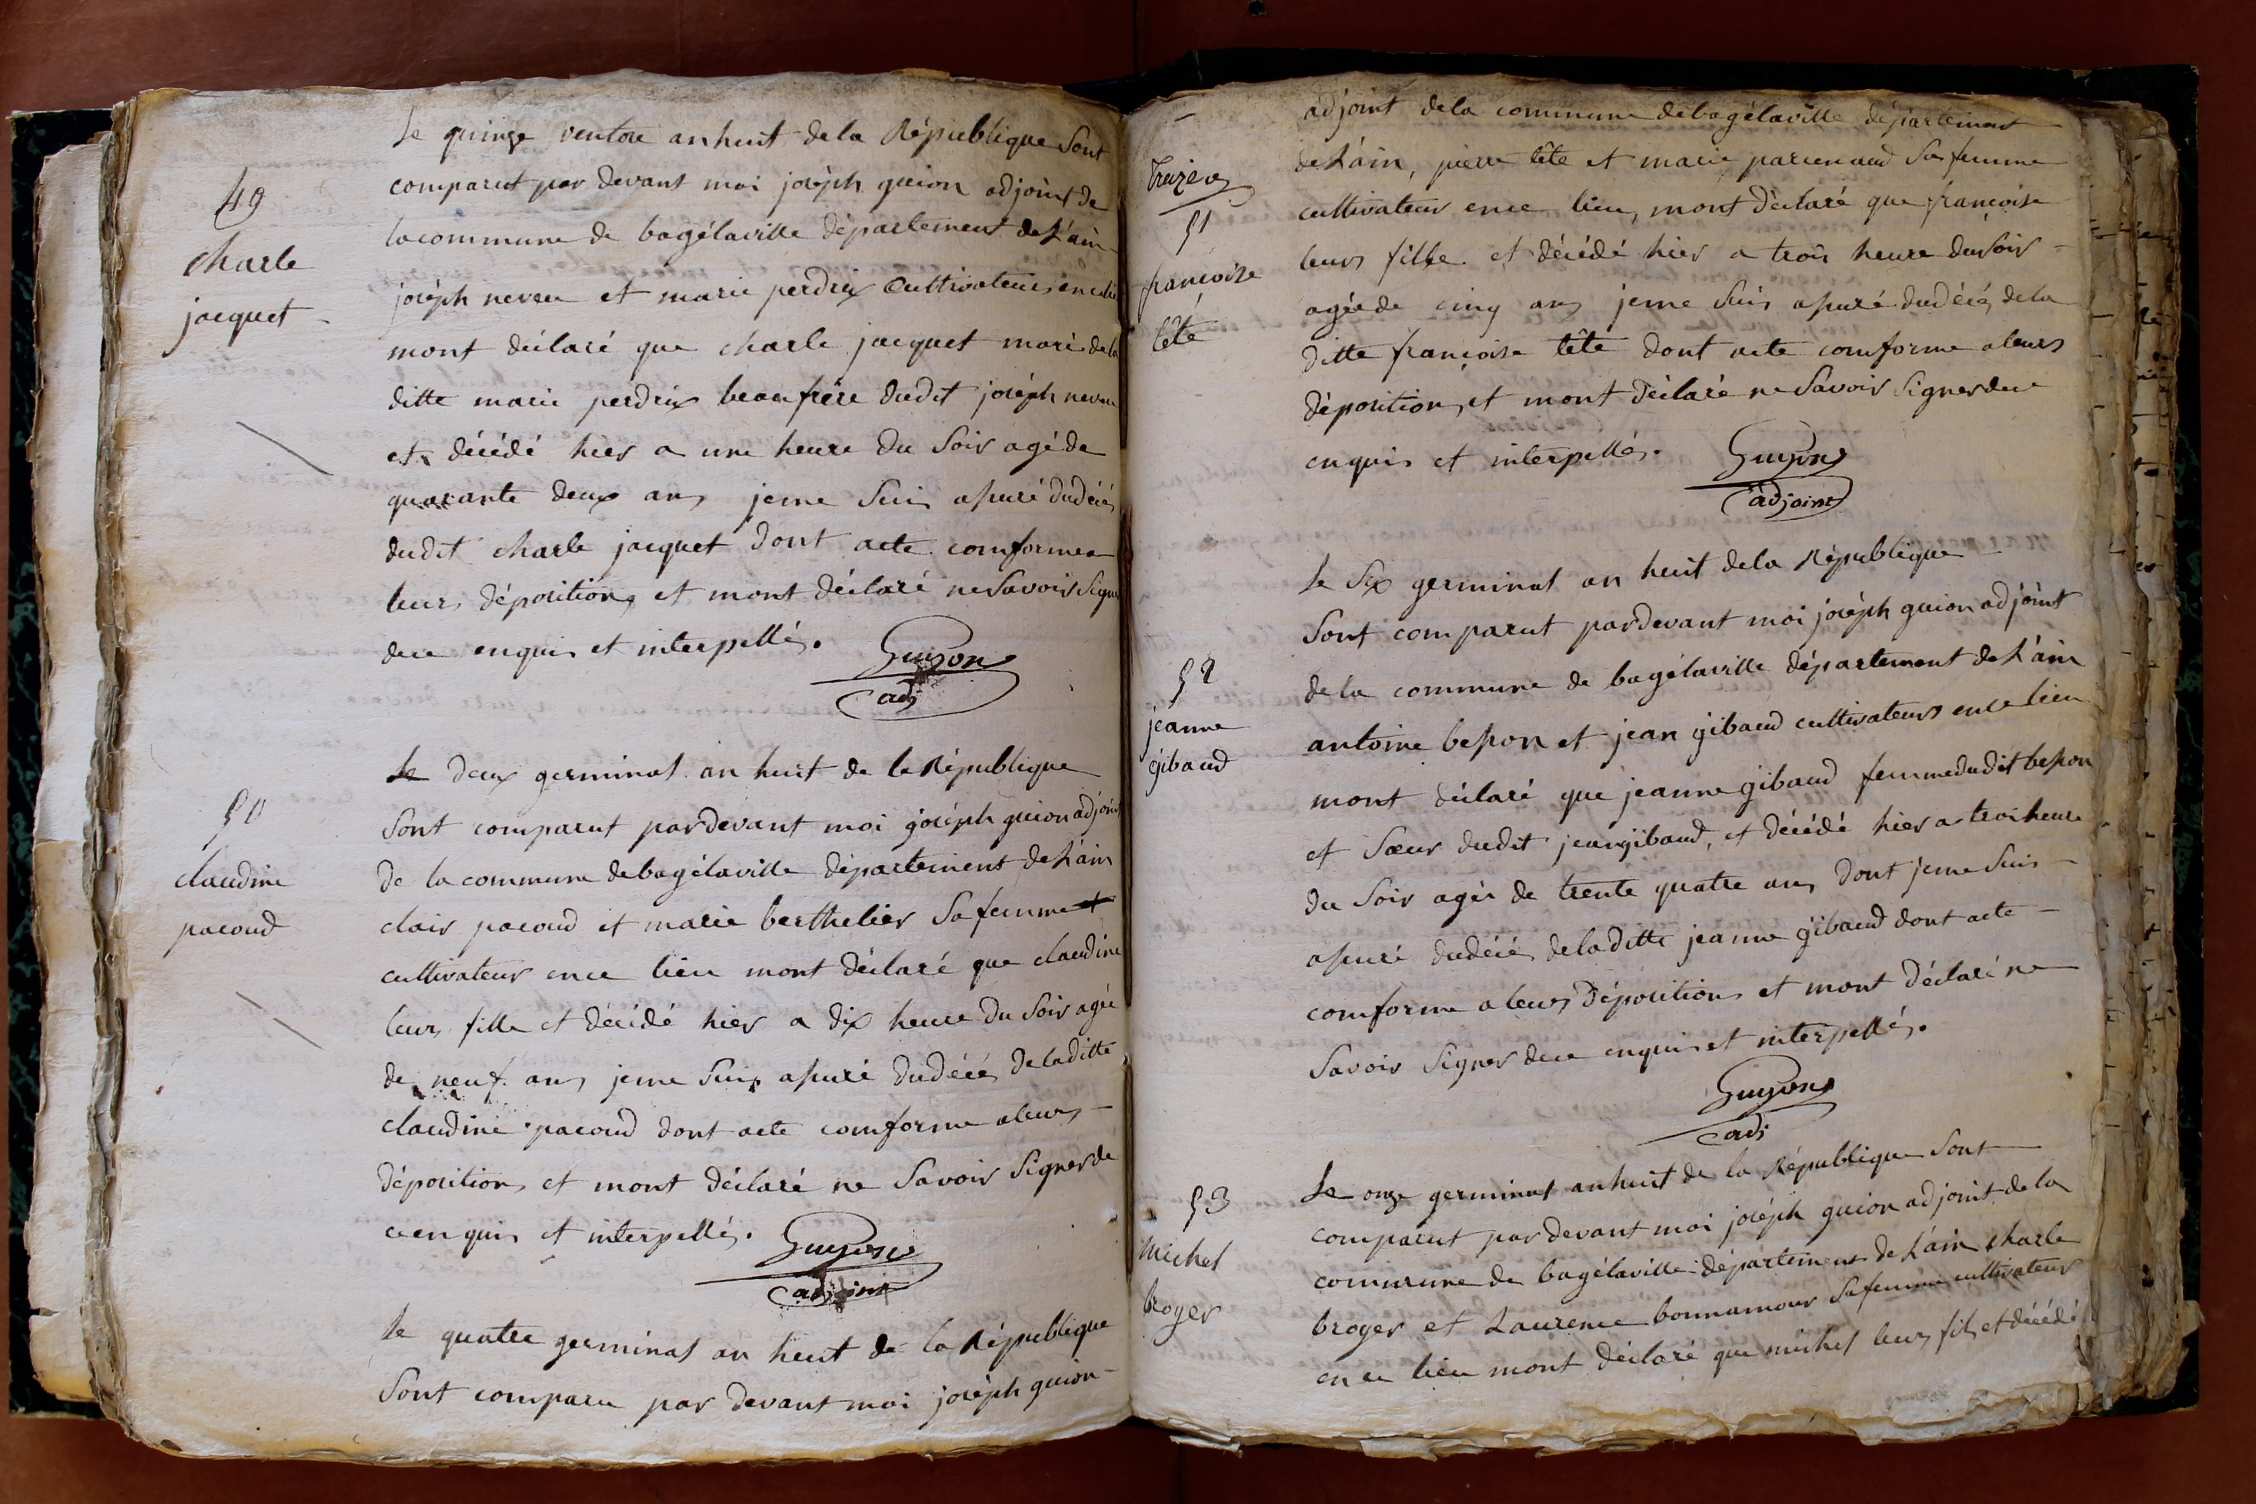 49
charle
jacquet
Le quinze ventose an huit de la République Sont
comparut par devant moi joseph guion adjoint de
la commune de bagélaville département de L'ain
joseph neveu et marie perdrix Cultivateurs en ce lieu
mont déclaré que charle jacquet mari de la
ditte marie perdrix beaufrére dudit joséph neveu
et décédé hier a une heure du Soir agé de
quarante deux ans jeme Suis asuré dudécé
dudit charle jacquet dont acte comforme a
leurs dépositions et mont déclaré ne Savoir Signer
dece enquis et interpellés.
Guyon
adj
50
claudine
pacoud
Le deux germinal an huit de la République
Sont comparut pardevant moi joséph guion adjoint
de la commune de bagélaville département de L'ain
clair pacoud et marie berthelier Sa femme et
cultivateur ence lieu mont déclaré que claudine
leurs fille et décédé hier a dix heure du Soir agée
de neuf ans jeme Suis asuré dudécé de laditte
claudine pacoud dont acte comforme a leurs
déposition et mont déclaré ne Savoir Signer de
ce en quis et interpellés.
Guyon
adjoint
Le quatre germinal an huit de la République
Sont comparu par devant moi joséph guion
treize
51
françoise
tête
adjoint dela commune debagélaville département
de L'ain, pierre tête et marie parienaud Sa femme
cultivateur ence lieu, mont déclaré que françoise
leurs fille et décédé hier a trois heure du Soir
agée de cinq ans jeme Suis asuré dudécé dela
ditte françoise tête dont acte comforme a leurs
déposition et mont déclaré ne Savoir Signer dece
enquis et interpellés.
Guyon
adjoint
52
jeanne
gibaud
Le Six germinal an huit dela République
Sont comparut pardevant moi joséph guion adjoint
de la commune de bagélaville département de L'ain
antoine besson et jean gibaud cultivateurs ence lieu
mont déclaré que jeanne gibaud femme dudit besson
et Sœur dudit jean gibaud, et décédé hier a trois heure
du Soir agée de trente quatre ans dont jeme Suis
asuré dudécé deladitte jeanne gibaud dont acte
comforme a leurs déposition et mont déclaré ne
Savoir Signer dece enquis et interpellés.
Guyon
adj
53
Michel
broyer
Le onze germinal an huit de la République Sont
comparut par devant moi joséph guion adjoint de la
commune de bagélaville département de L'ain charle
broyer et Laurence bonnamour Sa femme cultivateur
en ce lieu mont déclaré que michel leurs fils et décédé